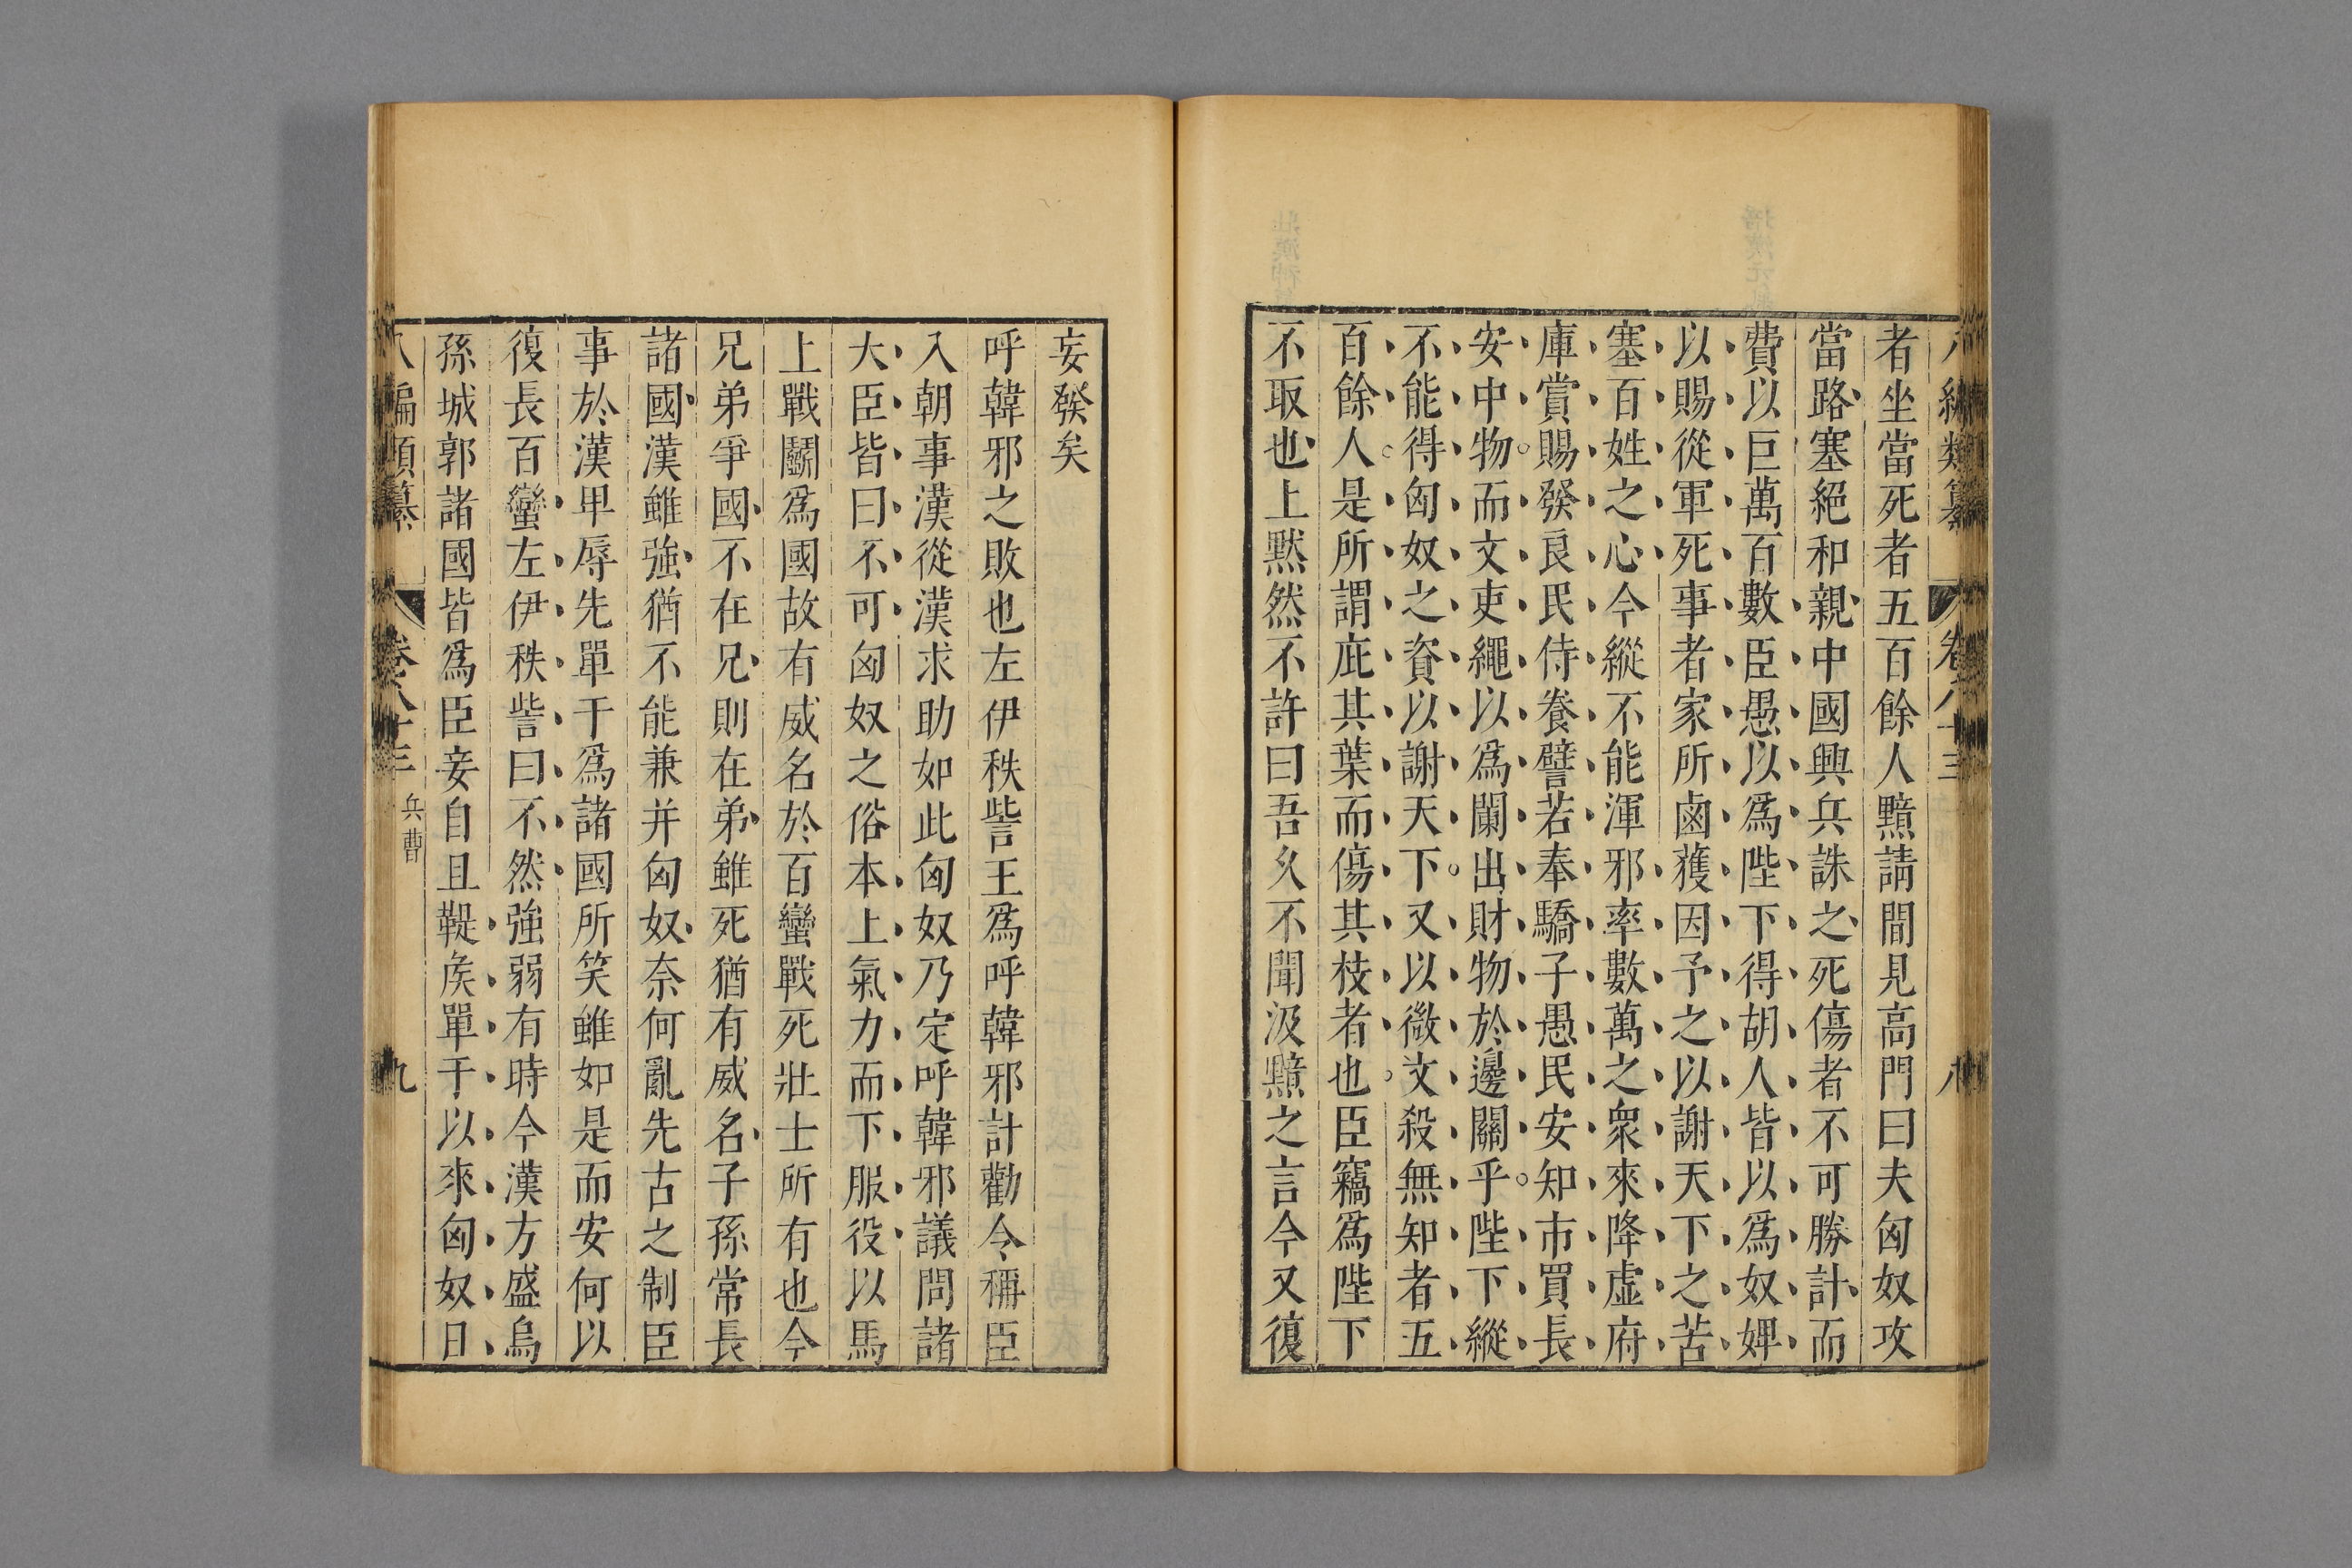 者坐當死者五百餘人黯請間見高門曰夫匈奴攻
當路塞絕和親中國興兵誅之死傷者不可勝計而
費以巨萬百數臣愚以爲陛下得胡人皆以爲奴婢
以賜從軍死事者家所鹵獲因予之以謝天下之苦
塞百姓之心今縱不能渾邪率數萬之衆來降虛府
庫賞賜發良民侍養譬若奉驕子愚民安知市買長
安中物而文吏繩以爲闌出財物於邊關乎陛下縱
不能得匈奴之資以謝天下又以微文殺無知者五
百餘人是所謂庇其葉而傷其枝者也臣竊爲陛下
不取也上默然不許曰吾久不聞汲黯之言今又復
妄發矣
呼韓邪之敗也左伊秩訾王爲呼韓邪計勸令稱臣
入朝事漢從漢求助如此匈奴乃定呼韓邪議問諸
大臣皆曰不可匈奴之俗本上氣力而下服役以馬
上戰鬭爲國故有威名於百蠻戰死壯士所有也今
兄弟爭國不在兄則在弟雖死猶有威名子孫常長
諸國漢雖強猶不能兼并匈奴奈何亂先古之制臣
事於漢卑辱先單于爲諸國所笑雖如是而安何以
復長百蠻左伊秩訾曰不然強弱有時今漢方盛烏
孫城郭諸國皆爲臣妾自且鞮侯單于以來匈奴日
八編類纂 卷八十三 兵曹 九